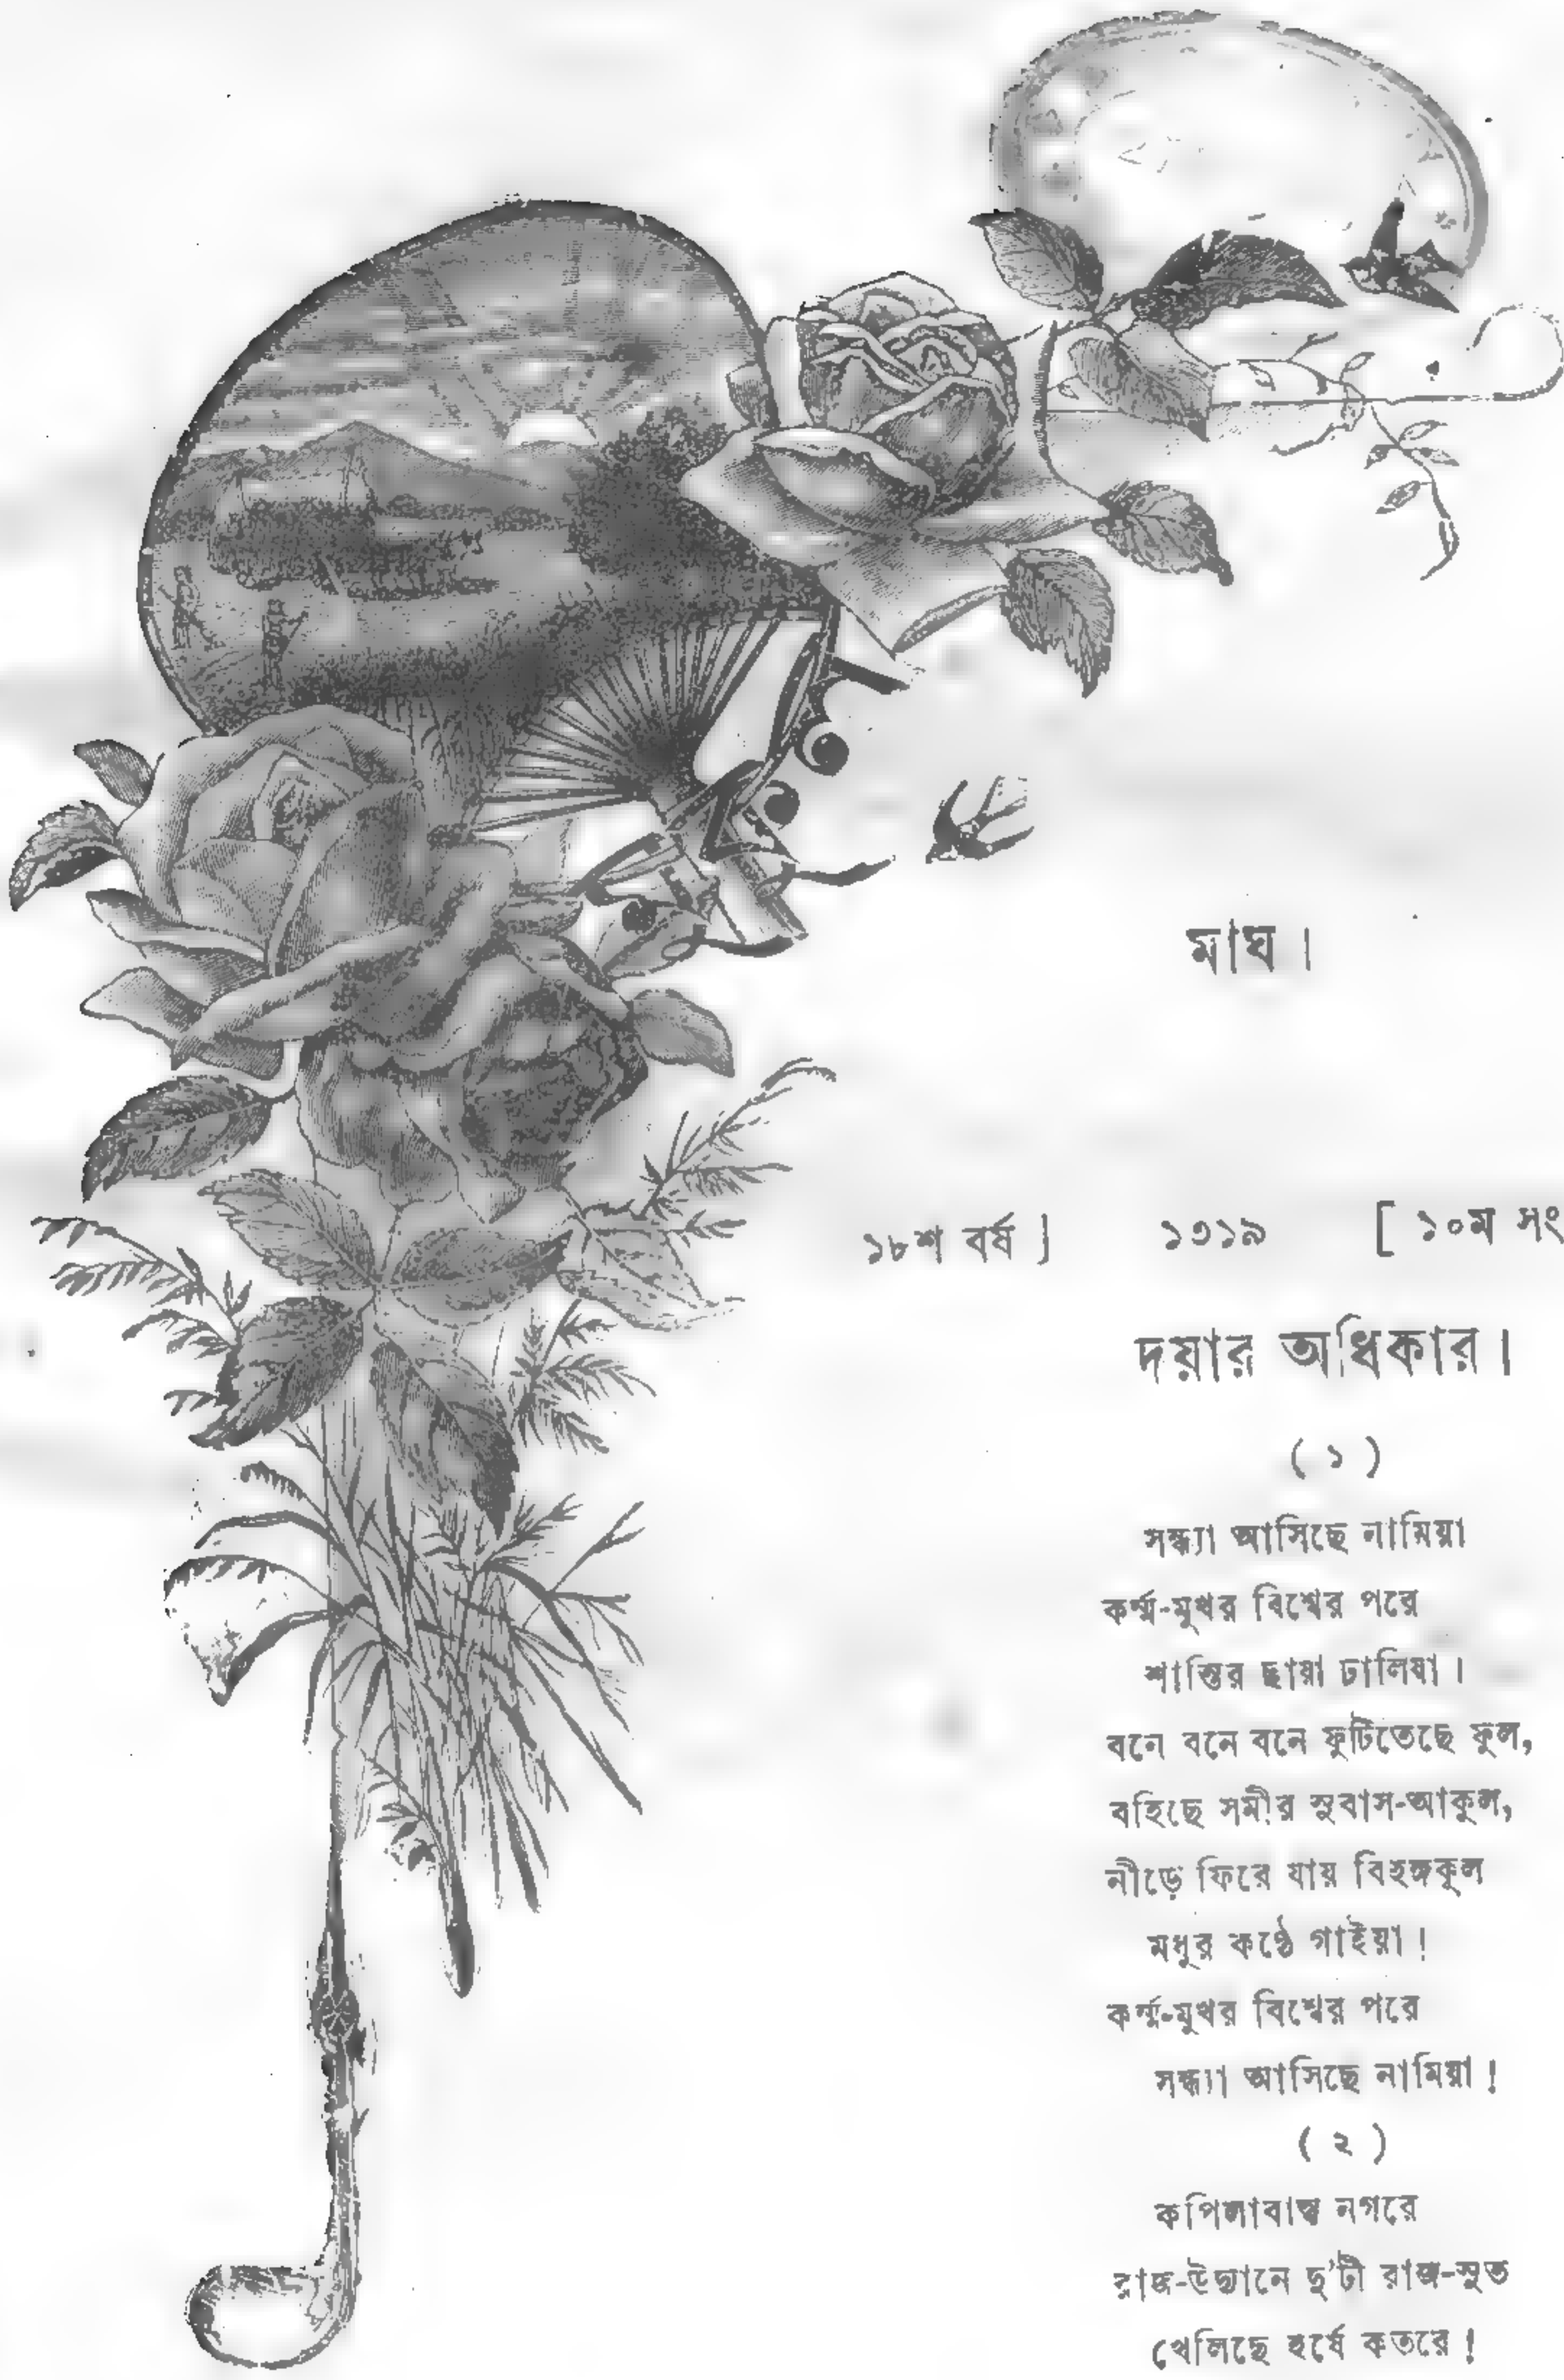 মাঘ।
১৮শ বর্ষ ] ১৩১৯ [ ১০ম সং
দয়ার অধিকার।
( ১ )
সন্ধ্যা আসিছে নামিয়া
কর্ম্ম-মুখর বিশ্বের পরে
শান্তির ছায়া ঢালিয়া।
বনে বনে বনে ফুটিতেছে ফুল,
বহিছে সমীর সুবাস-আকুল,
নীড়ে ফিরে যায় বিহঙ্গকূল
মধুর কণ্ঠে গাইয়া!
কর্ম্ম-মুখর বিশ্বের পরে
সন্ধ্যা আসিছে নামিয়া!
( ২ )
কপিলাবাস্তু নগরে
রাজ-উদ্যানে দু'টী রাজ-সুত
খেলিছে হর্ষে কতরে!